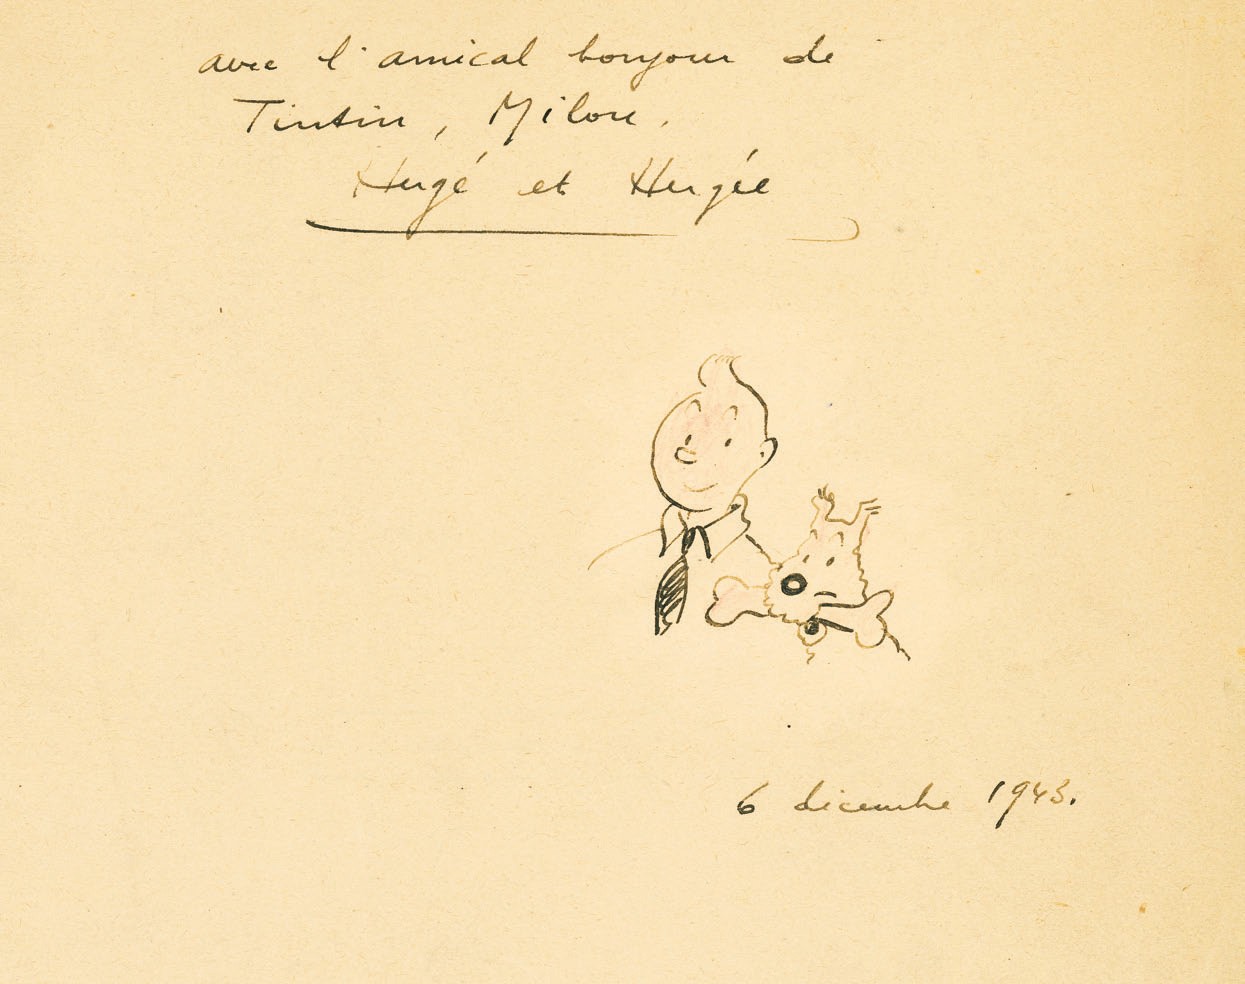 avec l'amical bonjour de
Tintin, Milou.
Hergé et Hergée
6 décembre 1943.